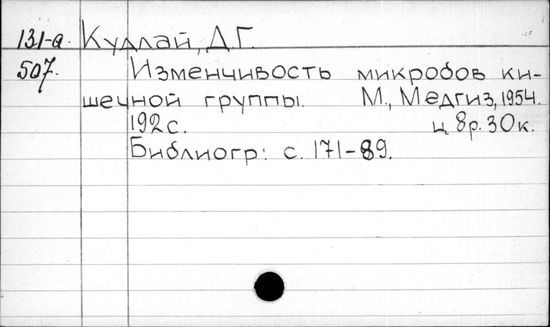 131-а. Кудлай, Д.Г.
507. Изменчивость микробов ки-
шечной группы. М., Медгиз, 1954.
192 с. ц 8р. 30к.
Библиогр: с. 171-89.